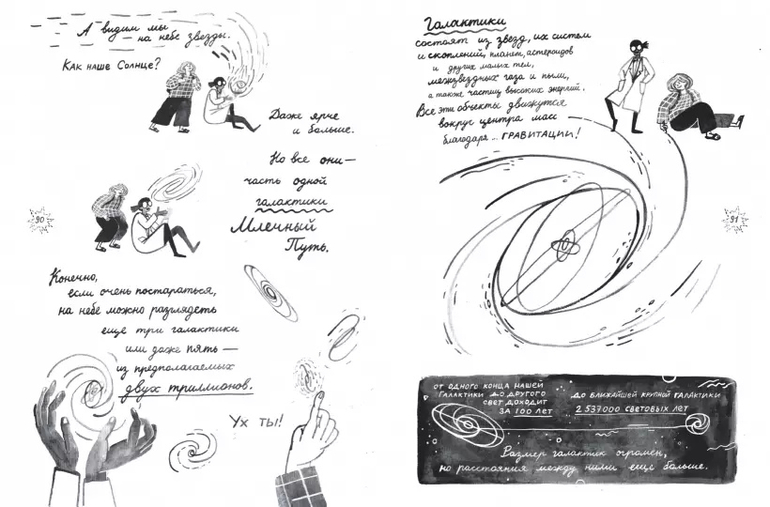 А видим мы
— на небе звезды.
Как наше Солнце?
Даже ярче
и больше.
Но все они —
часть одной
галактики
Млечный
Путь.
90
Конечно,
если очень постараться,
на небе можно разглядеть
еще три галактики
или даже пять —
из предполагаемых
двух триллионов.
Ух ты!
Галактики
состоят из звезд, их систем
и скоплений, планет, астероидов
и других малых тел,
межзвездных газа и пыли,
а также частиц высоких энергий.
Все эти объекты движутся
вокруг центра масс
благодаря... ГРАВИТАЦИИ!
91
ОТ ОДНОГО КОНЦА НАШЕЙ
ГАЛАКТИКИ ДО ДРУГОГО
СВЕТ ДОХОДИТ
ЗА 100 ЛЕТ
ДО БЛИЖАЙШЕЙ КРУПНОЙ ГАЛАКТИКИ
2 537000 СВЕТОВЫХ ЛЕТ
Размер галактик огромен,
но расстояния между ними еще больше.